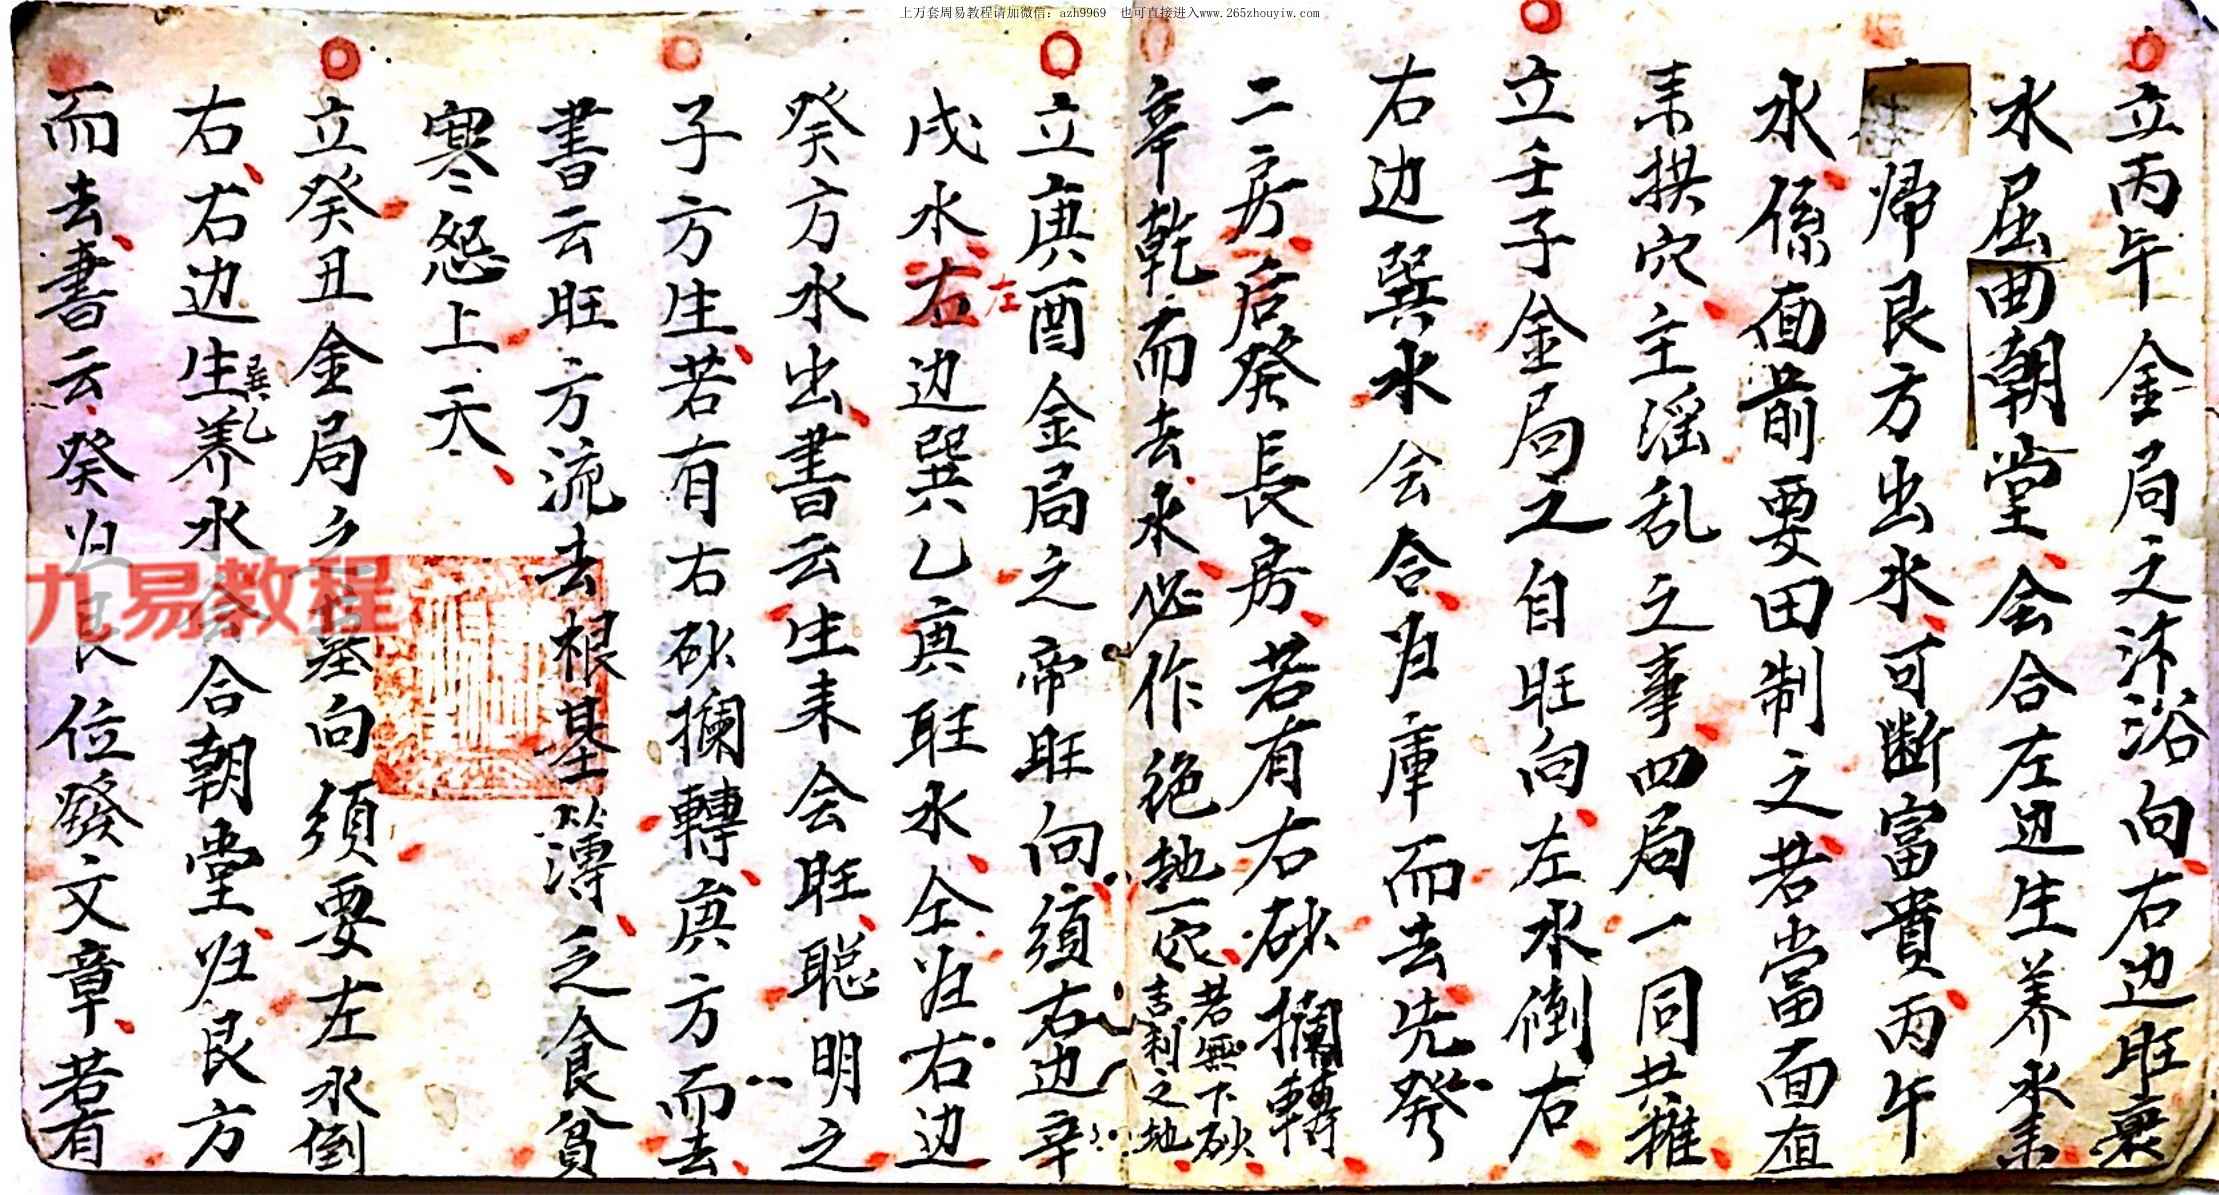 上万套周易教程请加微信：azh9969　也可直接进入www.265zhouyiw.com
立丙午金局之沐浴向右边旺衰
水屈曲朝堂会合左边生养水来
帰艮方出水可断富貴丙午
水係面前要田制之若當面直
来拱穴主滛乱之事四局一同共推
立壬子金局之自旺向左水倒右
右边巽水会合归庫而去先癸
二房后癸長房若有右砂攔轉
若無下砂
辛乾而去水必作绝地一穴
吉利之地
立庚酉金局之帝旺向須右边辛
戌水右边巽乙庚旺水仝归右边
左
癸方水出書云生来会旺聪明之
子方生若有右砂攔轉庚方而去
書云旺方流去根基薄乏食貧
寒怨上天
立癸丑金局之墓向須要左水倒
右右边生养水会合朝堂归艮方
巽乙
而去書云癸归艮位發文章若有
九易教程